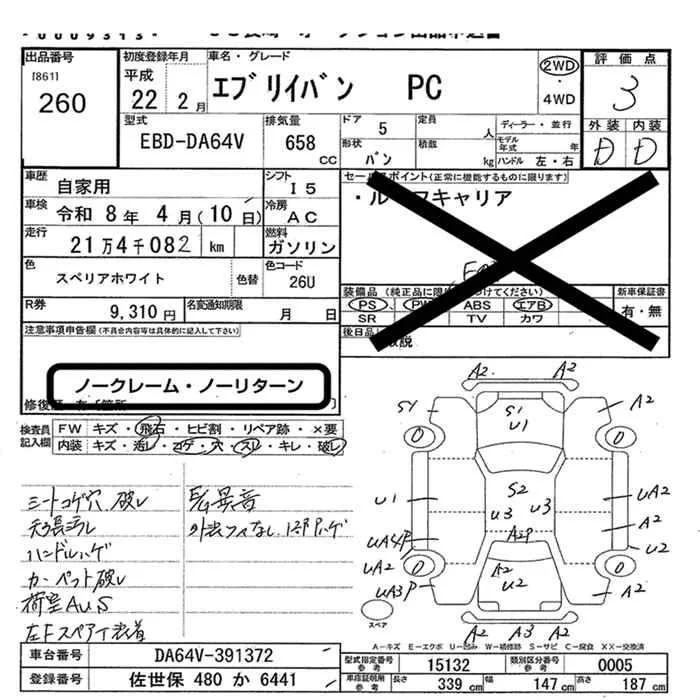 出品番号
[861]
260
初度登録年月
平成
22 2月
車名・グレード
エブリイバン PC
2WD
・
4WD
評価点
3
外装 内装
D D
型式
EBD-DA64V
排気量
658
CC
ドア 5
定員
人
形状
バン
積載
kg
ディーラー・並行
モデル年式 年
ハンドル 左・右
車歴
自家用
シフト
I5
車検 令和 8年 4月(10日)
冷房
AC
走行 21万4千082 km
燃料
ガソリン
色
スペリアホワイト
色替
色コード
26U
R券
9,310円
名変通知期限
月 日
セールスポイント(正常に機能するものに限ります)
・ルーフキャリア
装備品
PS PW ABS エアB
SR TV カワ
新車保証書
有・無
後日品
注意事項申告欄(不具合内容等は具体的に記入して下さい)
ノークレーム・ノーリターン
修復歴
検査員記入欄
FW キズ・飛石・ヒビ割・リペア跡・×要
内装 キズ・汚レ・コゲ・穴・スレ・キレ・破レ
シートコゲ穴、破レ
ハンドルハゲ
カーペット破レ
荷室AUS
左Fスペアイ装着
異音
A2 A2
S1 A2
S1
U1
U1 S2 UA2
U3 U3 A2
UA4P A2P U2
UA2 A2
UA3P U2
A2 A3 A2
スペア
A－キズ E－エクボ U－凹み W－補修跡 S－サビ C－腐食 XX－交換済
車台番号 DA64V-391372
登録番号 佐世保 480 か 6441
型式指定番号
参考
15132
類別区分番号
参考
0005
車庫証明用
参考
長さ 339 cm
幅 147 cm
高さ 187 cm